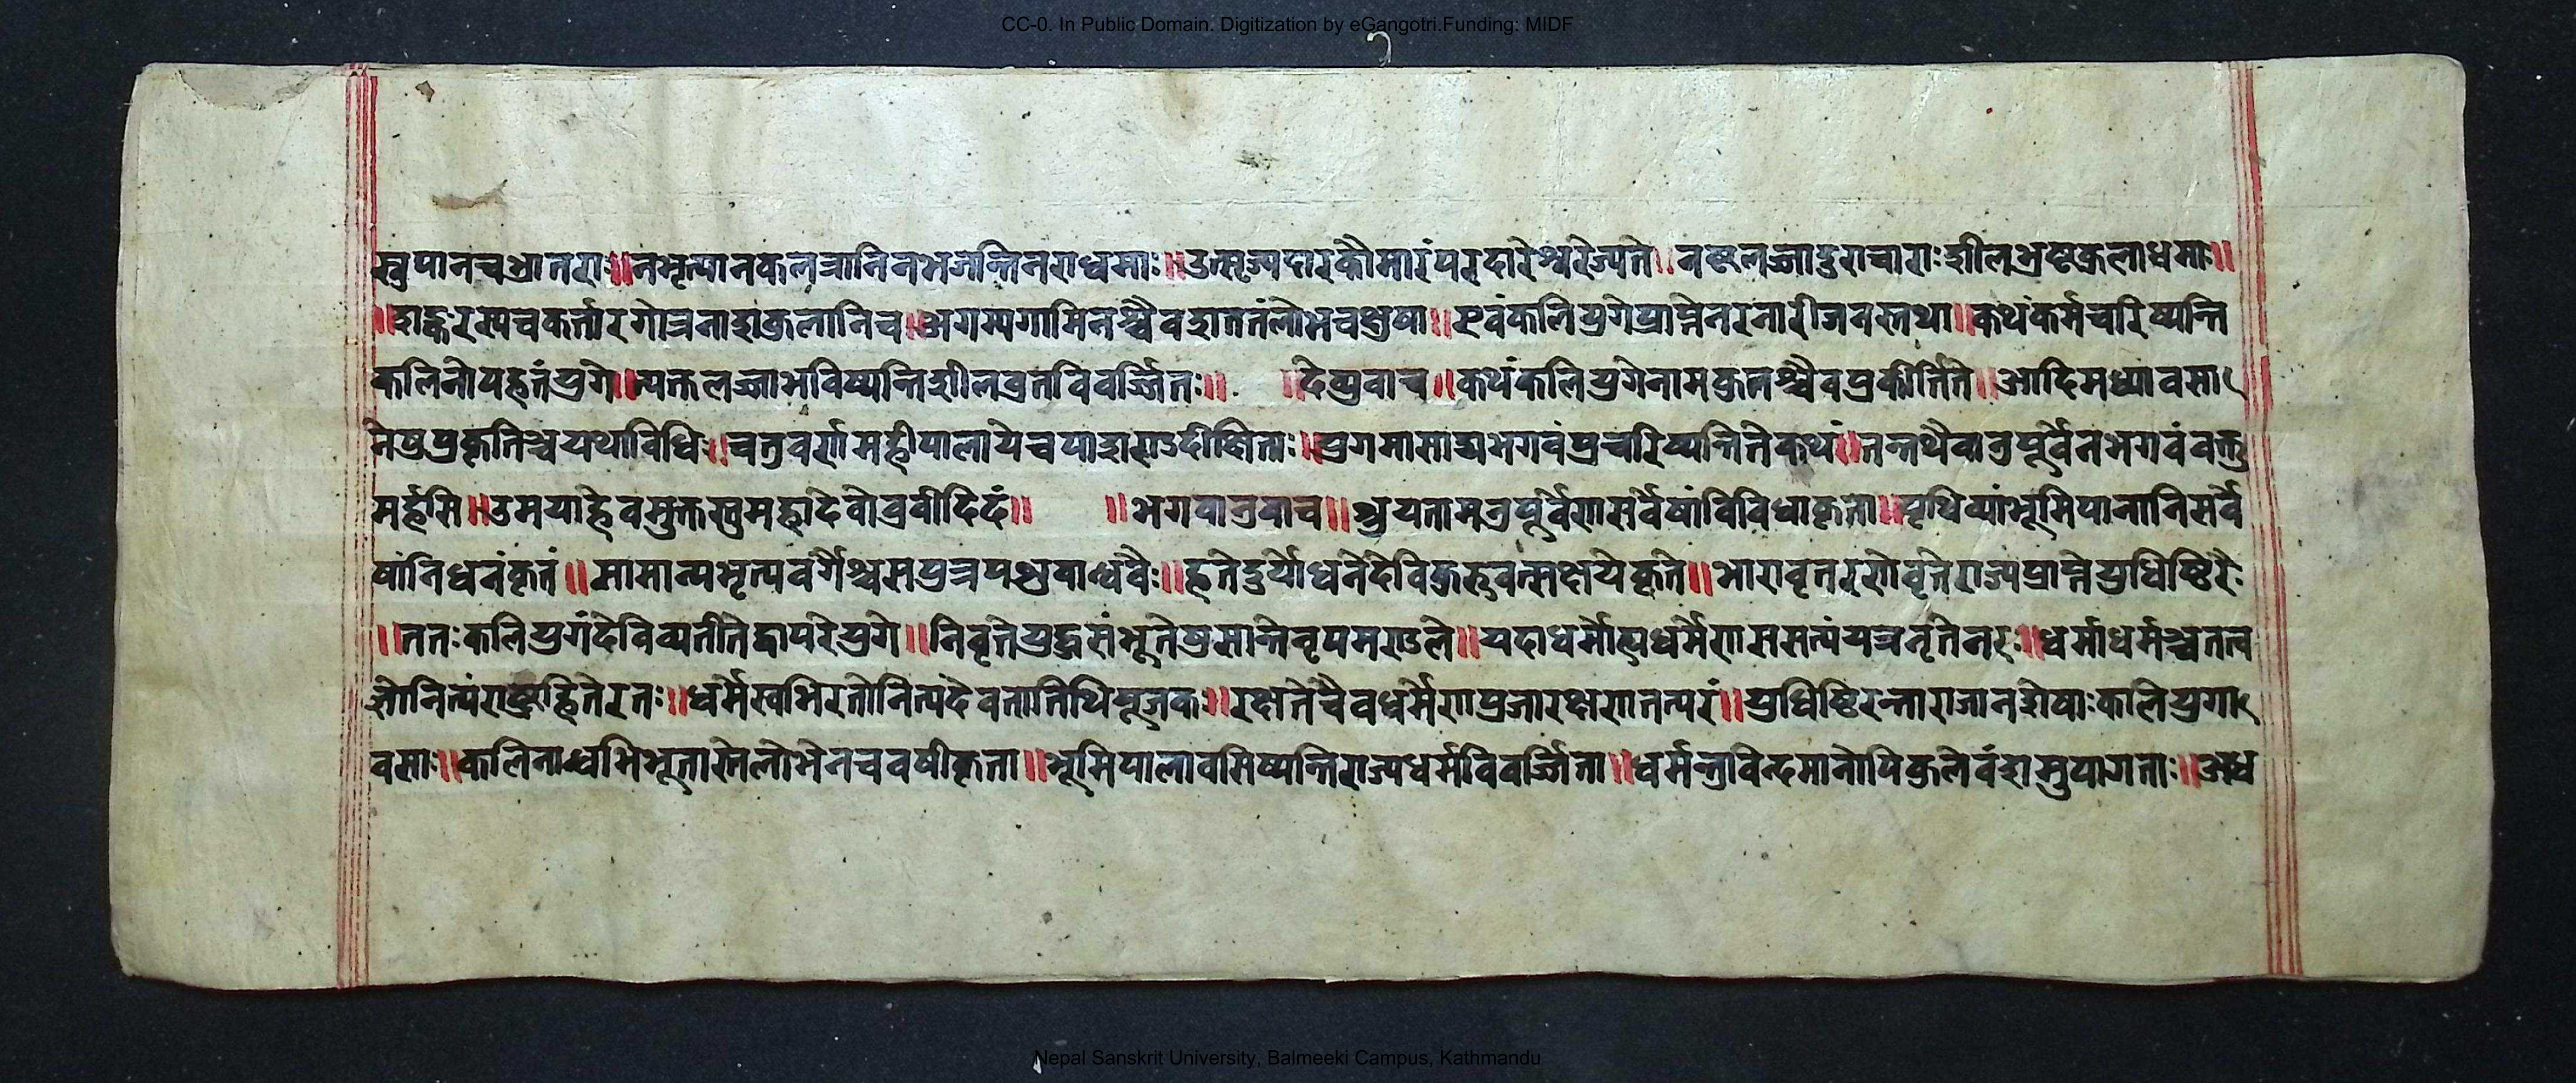 CC-0. In Public Domain. Digitization by eGangotri.Funding: MIDF
स्तुपानचभ्रातराः॥नभृत्यानकलत्रानिनभजन्तिनराधमाः॥उत्सृज्यदारकौमारंपरदारेश्चरेज्यते॥नष्टलज्जादुराचाराःशीलभ्रष्टकुलाधमाः॥
॥शङ्करस्यचकर्त्तारगोत्रनाशकुलानिच॥अगम्यगामिनश्चैवशततंलोभचक्षुषा॥एवंकलियुगेप्राप्तेनरनारीजनस्तथा॥कथंकर्मचरिष्यन्ति
कलिनोपहतंयुगे॥त्यक्तलज्जाभविष्यन्तिशीलव्रतविवर्ज्जितः॥ ॥देव्युवाच॥कथंकलियुगेनामकुलश्चैवप्रकीर्त्तिते॥आदिमध्यावसा
नेषुप्रकृतिश्चयथाविधिः॥चतुवर्णामहीपालायेचपाशुण्डदीक्षिताः॥युगमासाद्यभगवंप्रचरिष्यन्तितेकथं॥तन्तथैवानुपूर्वेनभगवंवक्तु
मर्हसि॥उमयाह्येवमुक्तस्तुमहादेवोब्रवीदिदं॥ ॥भगवानुवाच॥श्रुयतामनुपूर्वेणसर्वेषांविविधाकृतो॥पृथिव्यांभूमिपानानिसर्वे
षांनिधनंकृतं॥सामान्यभृत्यवर्गैश्चसपुत्रपशुबान्धवैः॥हतेदुर्योधनेदेविकुरुवत्सक्षयेकृते॥भारावृतररणेवृतेराज्यप्राप्तेयुधिष्ठिरैः
॥ततःकलियुगंदेविव्यतीतेद्वापरेयुगे॥निवृतेयुद्धसंभूतेप्रसान्तेनृपमण्डले॥यदाधर्मोत्यधर्मेणससत्यंयत्रनृतेनरः॥धर्माधर्मश्चतत्व
ज्ञोनित्यंराष्ट्रहितेरतः॥धर्मेस्वभिरतोनित्यंदेवतातिथिपूजकः॥रक्षतेचैवधर्मेणप्रजारक्षणतत्परं॥युधिष्ठिरन्ताराजानशेषाःकलियुगा
वसाः॥कलिनाध्वभिभूतास्तेलोभेनचवषीकृता॥भूमिपालावसिष्यन्तिराज्यधर्मविवर्ज्जिता॥धर्मन्त्रविन्दमानोपिकुलेवंशमुपागताः॥अध
Nepal Sanskrit University, Balmeeki Campus, Kathmandu